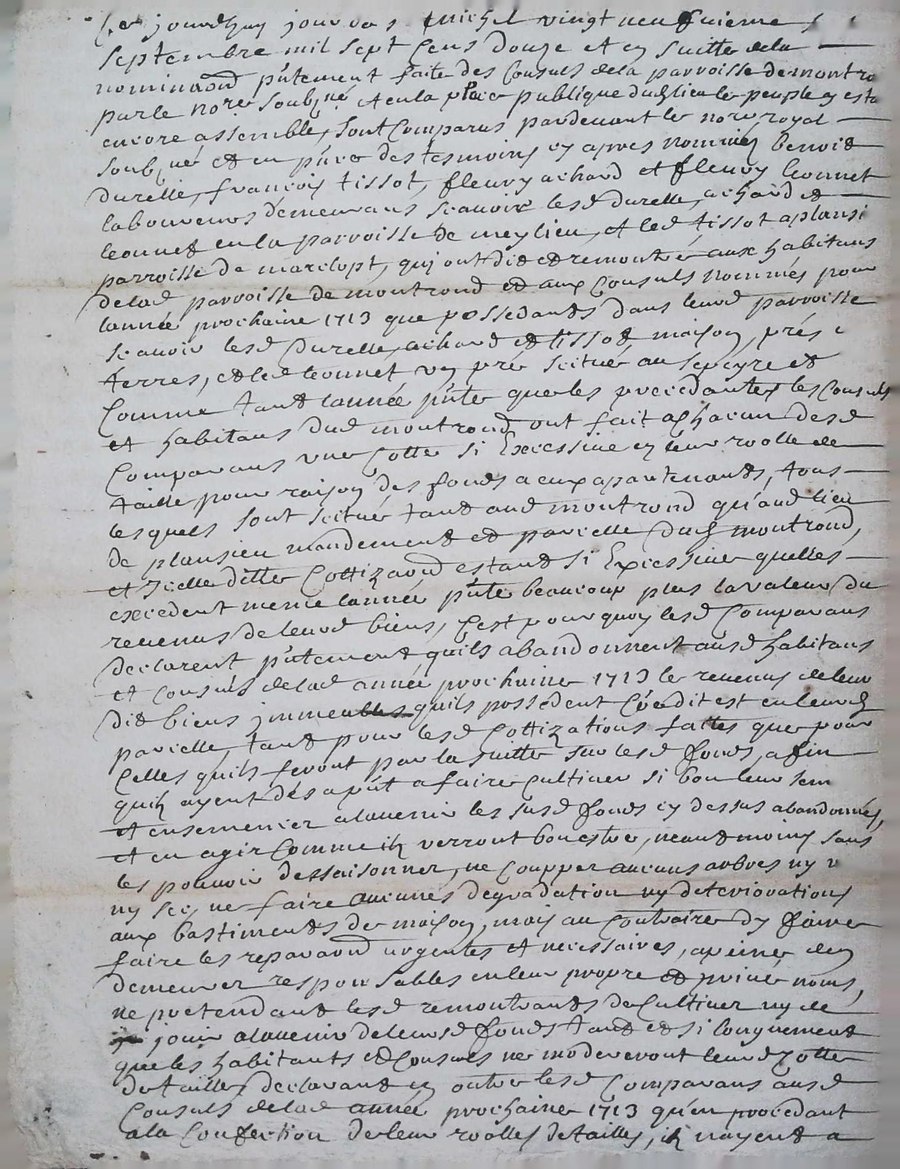 Ce jourdhuy jour de s^t michel vingt neufuieme
septembre mil sept Cens douze et en suitte dela
nominaõn p̃ntement faite des Consuls dela parroisse de montro
par le no^re Soub^né et en la place publique dud lieu le peuple y esta
encore assemblé, Sont Comparus pardevant le no^re royal
soub^né et en p̃nce des tesmoins cy apres nommés benoit
durelle, francois tissot, fleury achard et fleury Leonnet
laboureurs demeurans scavoir lesd durelle, achard et
leonnet en la parroisse de meylieu, et led tissot a plansi
parroisse de marclopt, qui ont dit et remontré aux habitans
de lad parroisse de montrond et aux Consuls nommés pour
lannée prochaine 1713 que possedants dans leurd parroisse
scavoir lesd Durelle, achard et tissot maison, prés
terres, et led leonnet un pré scitué au sepeyre et
Comme tant lannée p̃nte que les precedantes les Consuls
et habitans dud montrond ont fait a chacun desd
Comparans une Cotte si Excessive en leur roolle de
taille pour raison des fonds a eux apartenants, tous
lesquels sont scitués tant aud montrond qu'aud lieu
de plansieu mandement et parcelle dud montrond,
et Icelle ditte Cottizaõn estant si Excessive quelles
excedent meme lannée p̃nte beaucoup plus la valeur du
revenus de leurd biens, C'est pourquoy lesd Comparans
declarent p̃ntement quils abandonnent ausd habitans
et Consuls delad année prochaine 1713 le revenus de leur
dit biens jmmeubles quils possedent Co'e dit est en leurd
parcelle, tant pour lesd Cottizations faittes que pour
Celles quils feront par la suitte sur lesd fonds, afin
quils ayent dés apñt a faire Cultiver si bon leur sem
et ensemencer alavenir les susd fonds cy dessus abandonnés,
et en agir Comme ils verront bon estre, neantmoins sans
les pouvoir dessaisonner, ne Coupper aucuns arbres ny v
ny sec, ne faire aucunes degradation ny deteriorations
aux bastiments de maison, mais au Contraire dy faire
faire les reparaõns urgentes et necessaires, apeine den
demeurer responsables en leur propre et privé noms,
ne pretendants lesd remontrants de Cultiver ny de
jouir alavenir de leursd fonds tant et si longuement
que les habitants et Consuls ne modereront leurd Cotte
de taille, declarant en outre lesd Comparans ausd
Consuls delad année prochaine 1713 qu'en procedant
a la Confection de leur roolles de tailles, ils nayent a